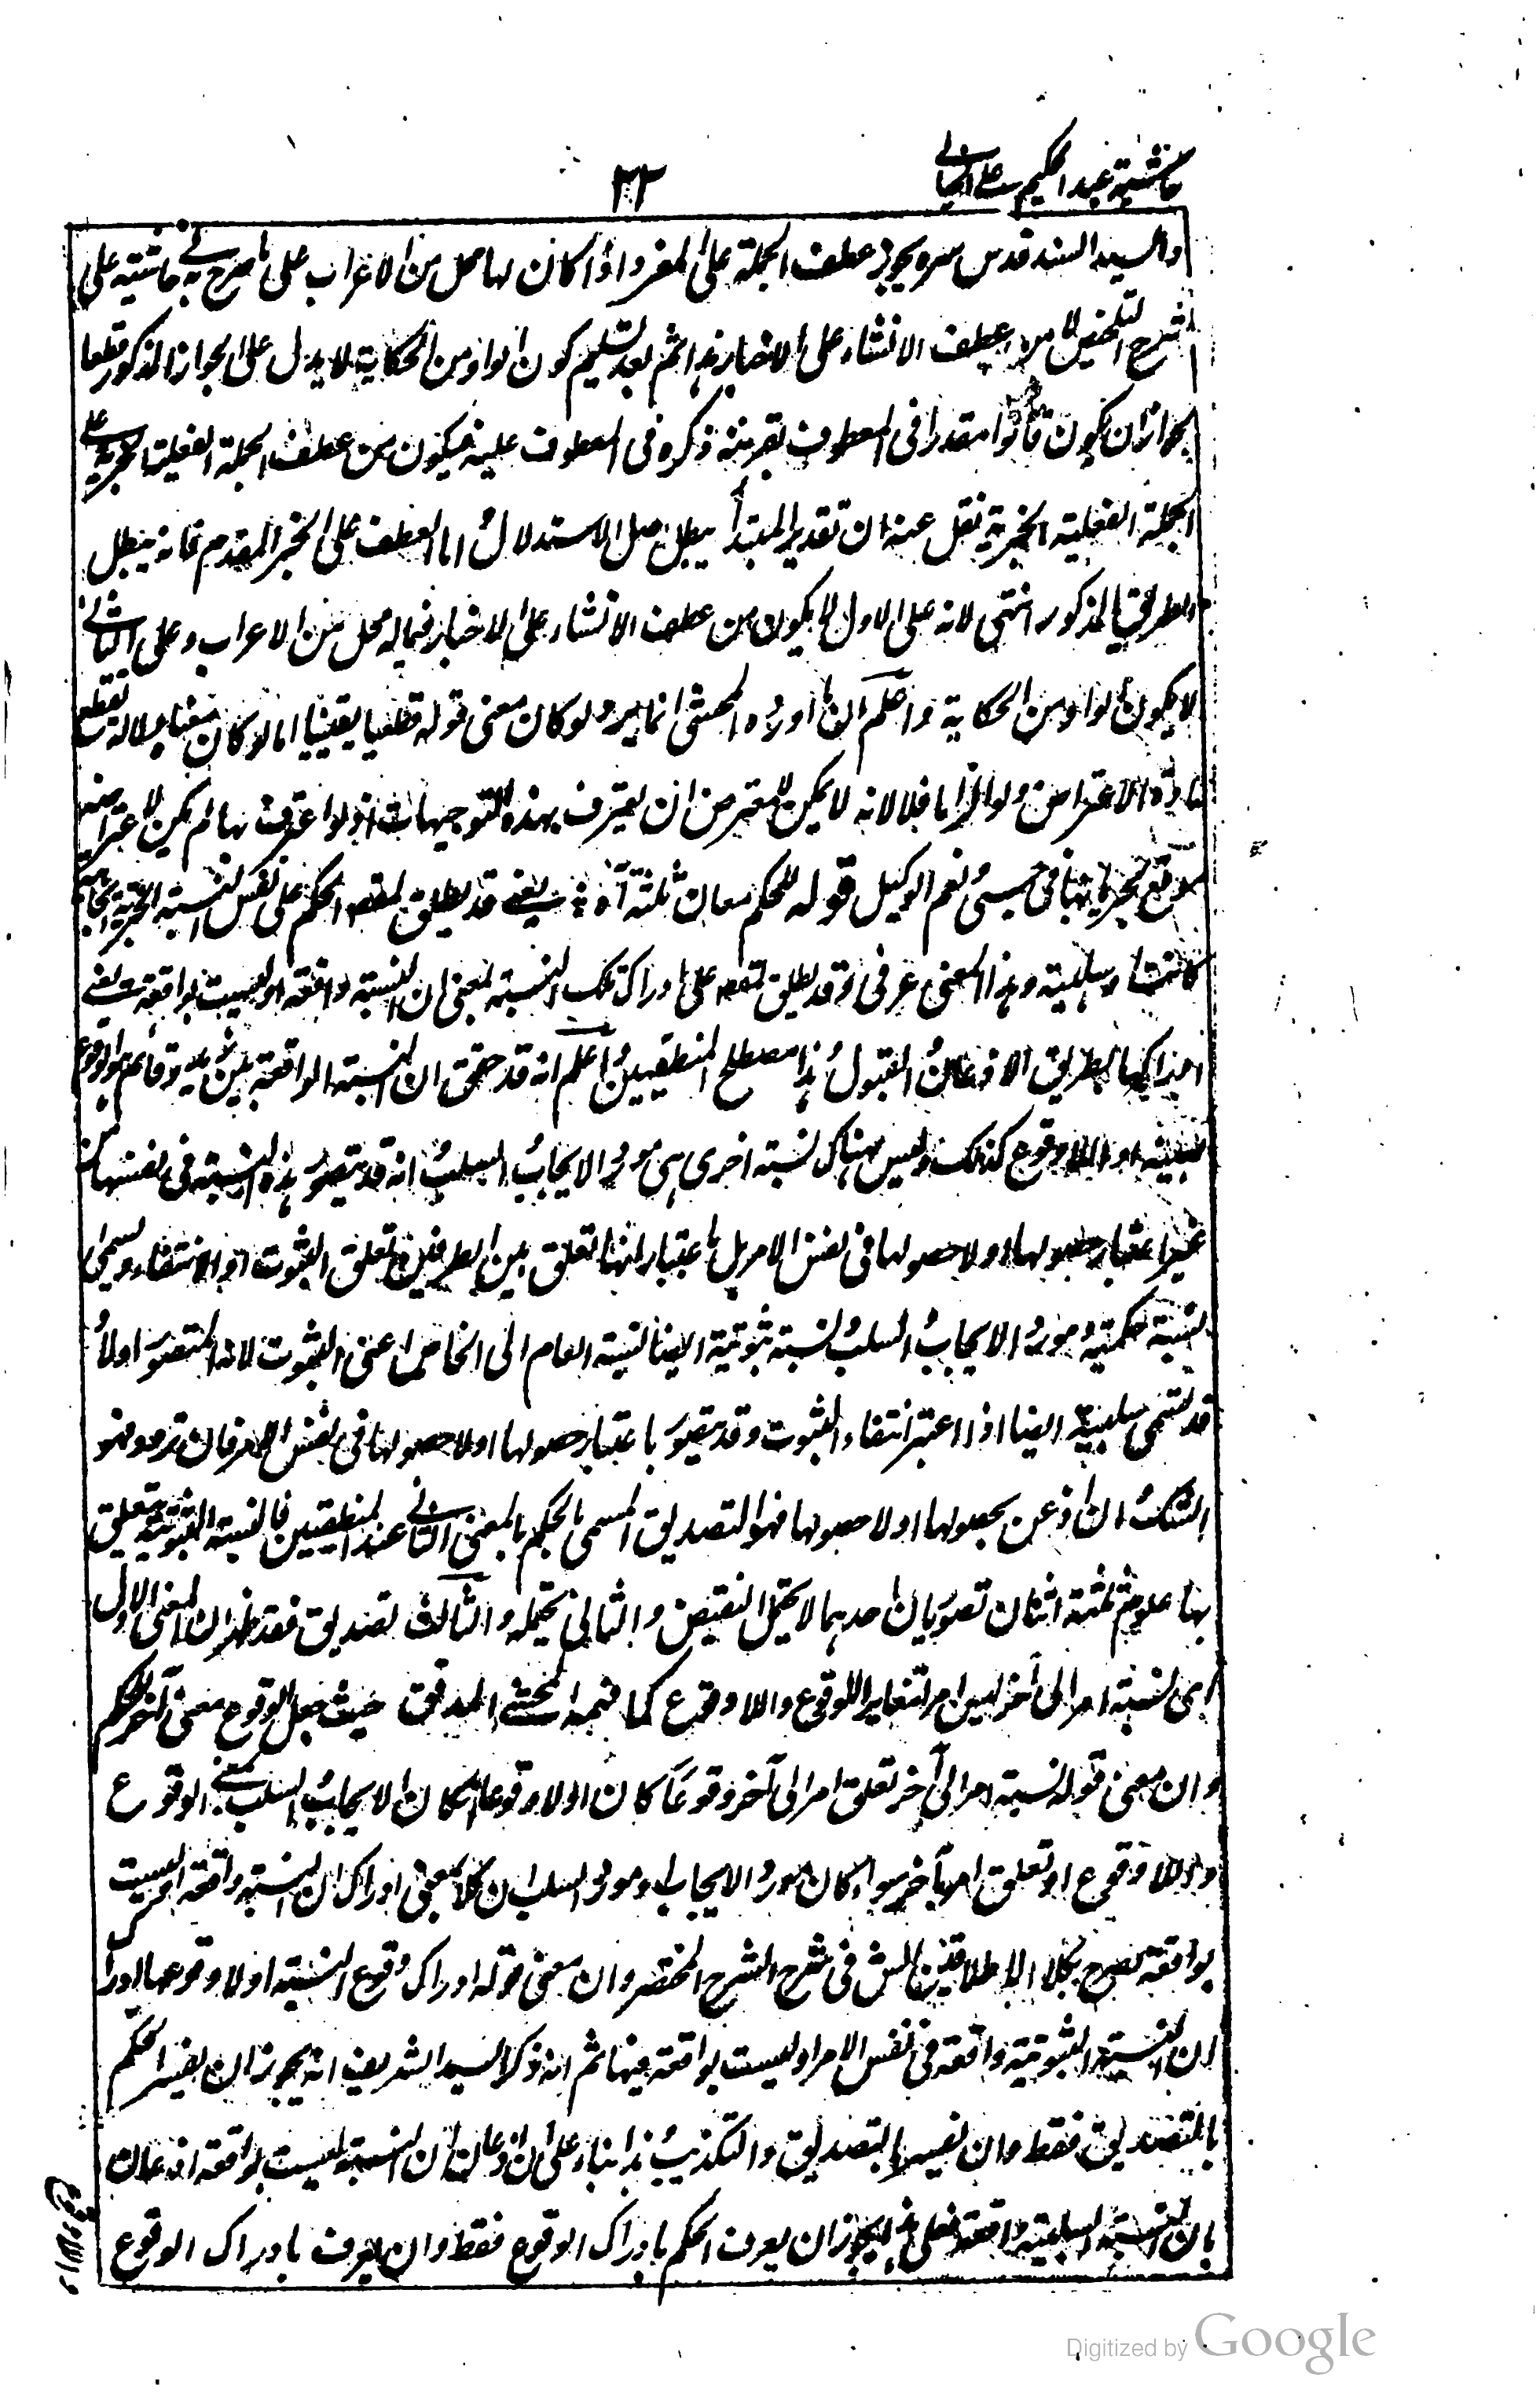 حاشية عبد الحكيم على الخيالي
٢٢
والسيد السند قدس سره يجوز عطف الجملة على المفرد اذا كان لها محل من الاعراب على ما صرح به في حاشيته على
شرح التلخيص لا من عطف الانشاء على الاخبار هذا ثم بعد تسليم كون الواو من الحكاية لا يدل على الجواز المذكور قطعا
لجواز ان يكون قالوا مقدرا في المعطوف بقرينة ذكره في المعطوف عليه فيكون من عطف الجملة الفعلية الخبرية على
الجملة الفعلية الخبرية نقل عنه ان تقدير المبتدأ يبطل اصل الاستدلال اما العطف على الخبر المقدم فانه يبطل
الطريق المذكور انتهى لانه على الاول لا يكون من عطف الانشاء على الاخبار فيما له محل من الاعراب وعلى الثاني
لا يكون الواو من الحكاية واعلم ان ما اورده المحشي انما يرد لو كان معنى قوله قطعيا يقينيا اما لو كان معناه دلالة تقطع
مادة الاعتراض ولو الزاما فلا لانه لا يمكن للمعترض ان يعترف بهذه التوجيهات اذ لو اعترف بها لم يكن لاعتراضه
موقع لجريانها في حسبي ونعم الوكيل قوله للحكم معان ثلثة آه يعني قد يطلق لفظ الحكم على نفس النسبة الخبرية ايجابية
كانت او سلبية وهذا المعنى عرفي وقد يطلق لفظه على ادراك تلك النسبة بمعنى ان النسبة واقعة او ليست بواقعة يعني
ادراكها بطريق الاذعان والقبول وهذا مصطلح المنطقيين واعلم انه قد حقق ان النسبة الواقعة بين زيد وقائم هو الوقوع
بعينه او اللاوقوع كذلك وليس هناك نسبة اخرى هي مورد الايجاب والسلب انه قد يتصور هذه النسبة في نفسها من
غير اعتبار حصولها او لا حصولها في نفس الامر بل باعتبار انها تعلق بين الطرفين تعلق الثبوت او الانتفاء ويسمى
نسبة حكمية ومورد الايجاب والسلب ونسبة ثبوتية ايضا نسبة العام الى الخاص اعني الثبوت لانه المتصور اولا و
قد تسمى سلبية ايضا اذا اعتبر انتفاء الثبوت وقد يتصور باعتبار حصولها او لا حصولها في نفس الامر فان تردد فهو
الشك وان اذعن بحصولها او لا حصولها فهو التصديق المسمى بالحكم بالمعنى الثاني عند المنطقيين فالنسبة الثبوتية يتعلق
بها علوم ثلثة اثنان تصوريان احدهما لا يحتمل النقيض والثاني يحتمله والثالث تصديق فقد ظهر ان المعنى الاول
اي نسبة امر الى آخر ليس امرا مغايرا للوقوع واللاوقوع كما فهمه المحشي المدقق حيث جعل الوقوع معنى آخر للحكم
وان معنى قوله نسبة امر الى آخر تعلق امر الى آخر وقوعا كان او لا وقوعا ان كان الايجاب والسلب بمعنى الوقوع
واللاوقوع او تعلق امر بآخر سواء كان مورد الايجاب او مورد السلب ان كانا بمعنى ادراك ان النسبة واقعة او ليست
بواقعة صرح بكلا الاطلاقين الش في شرح الشرح المختصر وان معنى قوله ادراك وقوع النسبة او لا وقوعها ادراك
ان النسبة الثبوتية واقعة في نفس الامر او ليست بواقعة فيها ثم انه ذكر السيد الشريف انه يجوز ان يفسر الحكم
بالتصديق فقط وان يفسر بالتصديق والتكذيب وهذا بناء على ان اذعان ان النسبة ليست بواقعة اذعان
بان النسبة السلبية واقعة فعلى هذا يجوز ان يعرف الحكم بادراك الوقوع فقط وان يعرف بادراك الوقوع
واللاوقوع
Digitized by Google